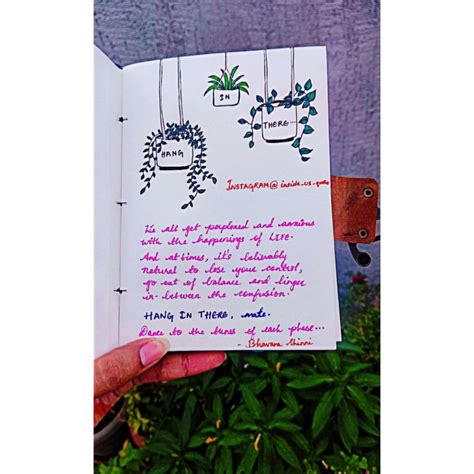 IN
HANG
THERE
INSTAGRAM@ inside_us_
We all get perplexed and anxious
with the happenings of LIFE.
And at times, it's believably
natural to lose your control,
go out of balance and linger
in-between the confusion.
HANG IN THERE, mate.
Dance to the tunes of each phase...
- Bhavana